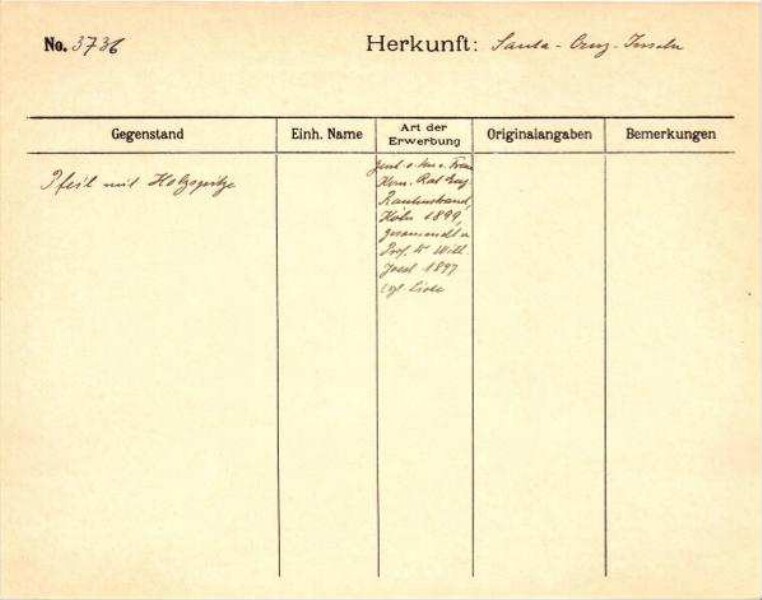 No. 3736 Herkunft: Santa-Cruz-Inseln
Gegenstand Einh. Name Art der Erwerbung Originalangaben Bemerkungen
Pfeil mit Holzspitze
Frau
Kom. Rat Eug.
Rautenstrauch,
Köln 1899,
gesammelt v.
Prof. Dr Wilh.
Joest 1897